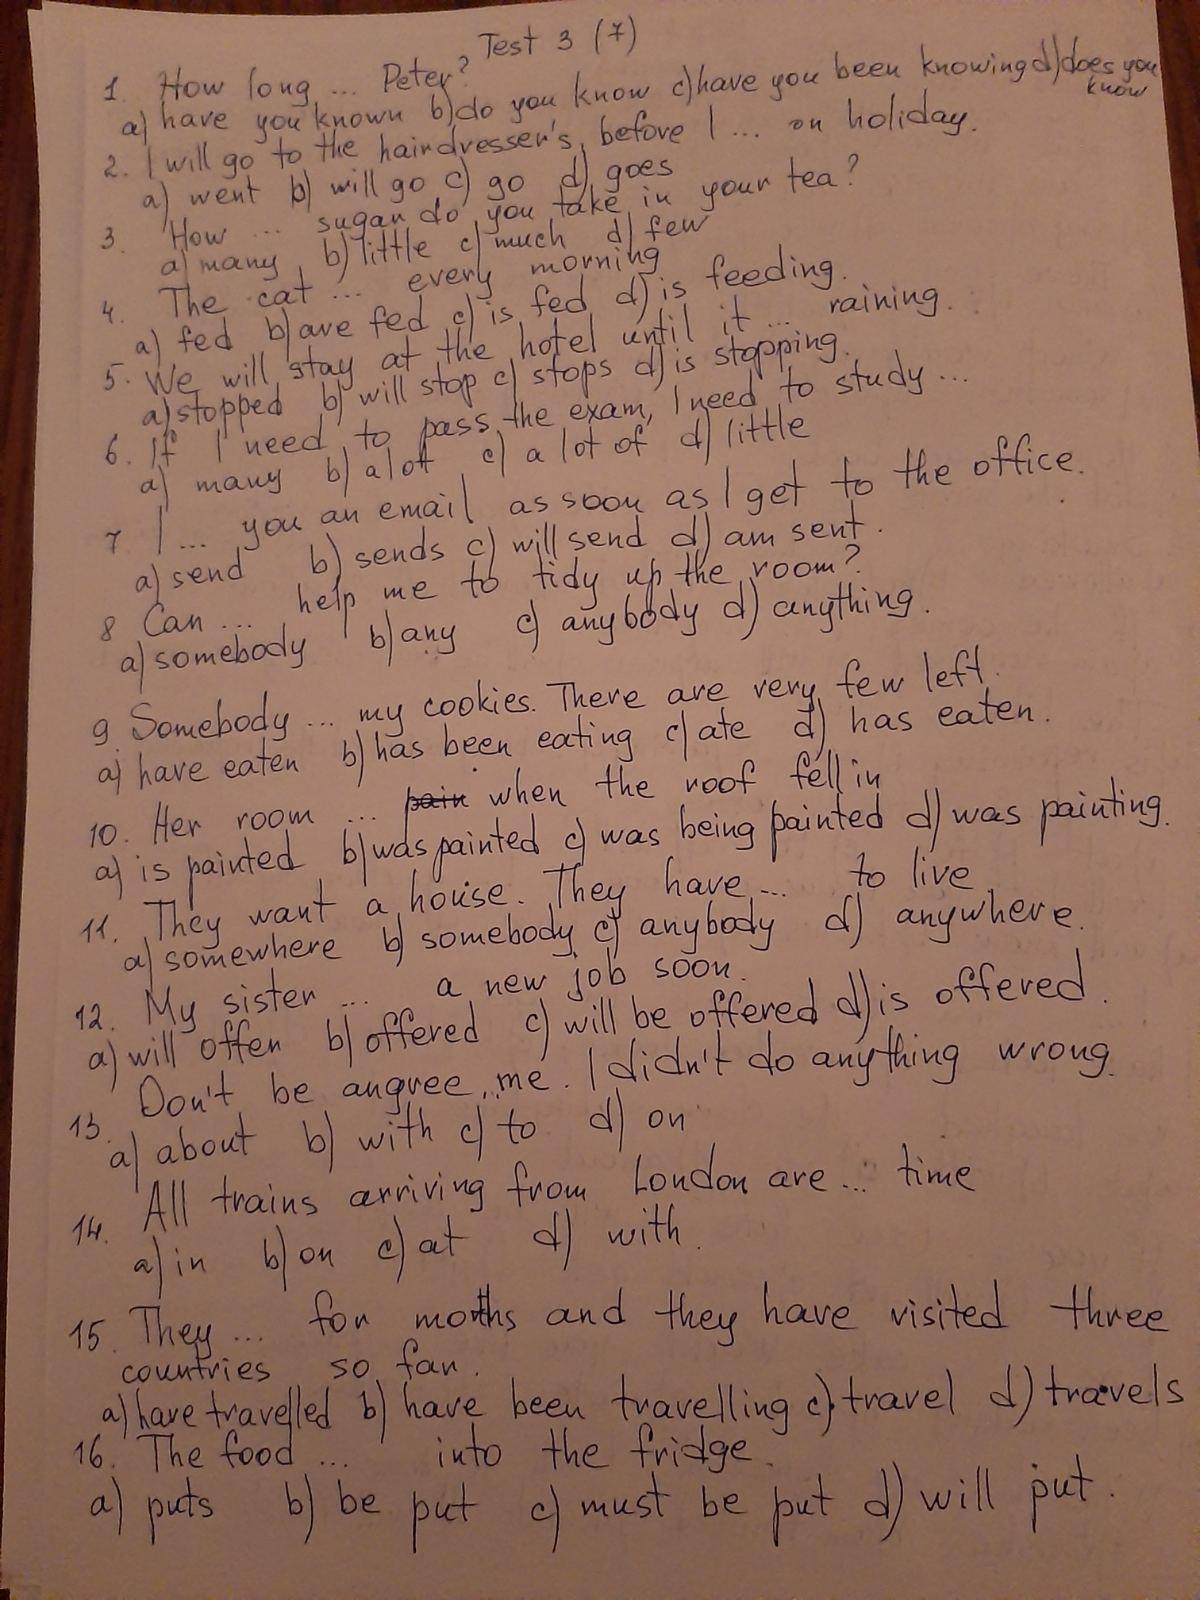 Test 3 (7)
1. How long ... Peter?
a) have you known b) do you know c) have you been knowing d) does you know
2. I will go to the hairdresser's, before I ... on holiday.
a) went b) will go c) go d) goes
3. How ... sugar do you take in your tea?
a) many b) little c) much d) few
4. The cat ... every morning
a) fed b) are fed c) is fed d) is feeding.
5. We will stay at the hotel until it ... raining.
a) stopped b) will stop c) stops d) is stopping.
6. If I need to pass the exam, I need to study ...
a) many b) a lot c) a lot of d) little
7 I ... you an email as soon as I get to the office.
a) send b) sends c) will send d) am sent.
8 Can ... help me to tidy up the room?
a) somebody b) any c) anybody d) anything.
9. Somebody ... my cookies. There are very few left.
a) have eaten b) has been eating c) ate d) has eaten.
10. Her room ... pain when the roof fell in
a) is painted b) was painted c) was being painted d) was painting.
11. They want a house. They have ... to live.
a) somewhere b) somebody c) anybody d) anywhere.
12. My sister ... a new job soon.
a) will offer b) offered c) will be offered d) is offered.
13. Don't be angree ... me. I didn't do anything wrong.
a) about b) with c) to d) on
14. All trains arriving from London are ... time
a) in b) on c) at d) with.
15. They ... for moths and they have visited three
countries so far.
a) have travelled b) have been travelling c) travel d) travels
16. The food ... into the fridge.
a) puts b) be put c) must be put d) will put.